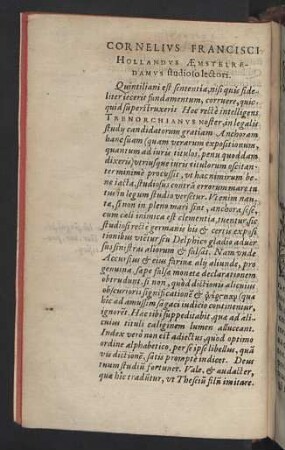 CORNELIVS FRANCISCI
HOLLANDVS ÆMSTELRE-
DAMVS studioso lectori.
Quintiliani est sententia, nisi quis fide-
liter iecerit fundamentum, corruere, quic-
quid superstruxeris Hoc recte intelligens
TRENORCHIANVS noster, in legalis
study candidatorum gratiam Anchoram
hanc suam (quam verarum expositionum,
quantum ad iuris titulos, penu quoddam
dixeris) verusque iuris titulorum oscitan-
ter minime procussit, vt hac nimirum be-
ne iacta, studiosus contra errorum mare tu-
tus in legum studio versetur. Vt enim nau-
ta, si non in pleno mari sine, anchora sist,
cum cali inimica est clementia, tenetur, sic
studiosus rectis germanis his & certis expo-
sitionibus vtetur seu Delphico gladio aduer-
sus sinistras aliorum & falsas. Nam vnde
Accursius & eius farinæ aly aliunde, pro
genuina sæpe falsa monetæ declarationem
obtrudunt. si non, quòd dictionis alicuius
obscurioris significationē &
bic ad amussim sagaci iudicio continentur,
ignorët. Hæc tibi suppeditabit, quæ ad ali-
cuius tituli caliginem lumen alluceant.
Index verò non est adiectus, quòd optimo
ordine alphabetico, per se ipse libellus, quã
vis dictionē, satis promptè indicet. Deus
tuum studiū fortunet. Vale, & audacter,
quæ hic traduntur, vt Theseus filū imitare.